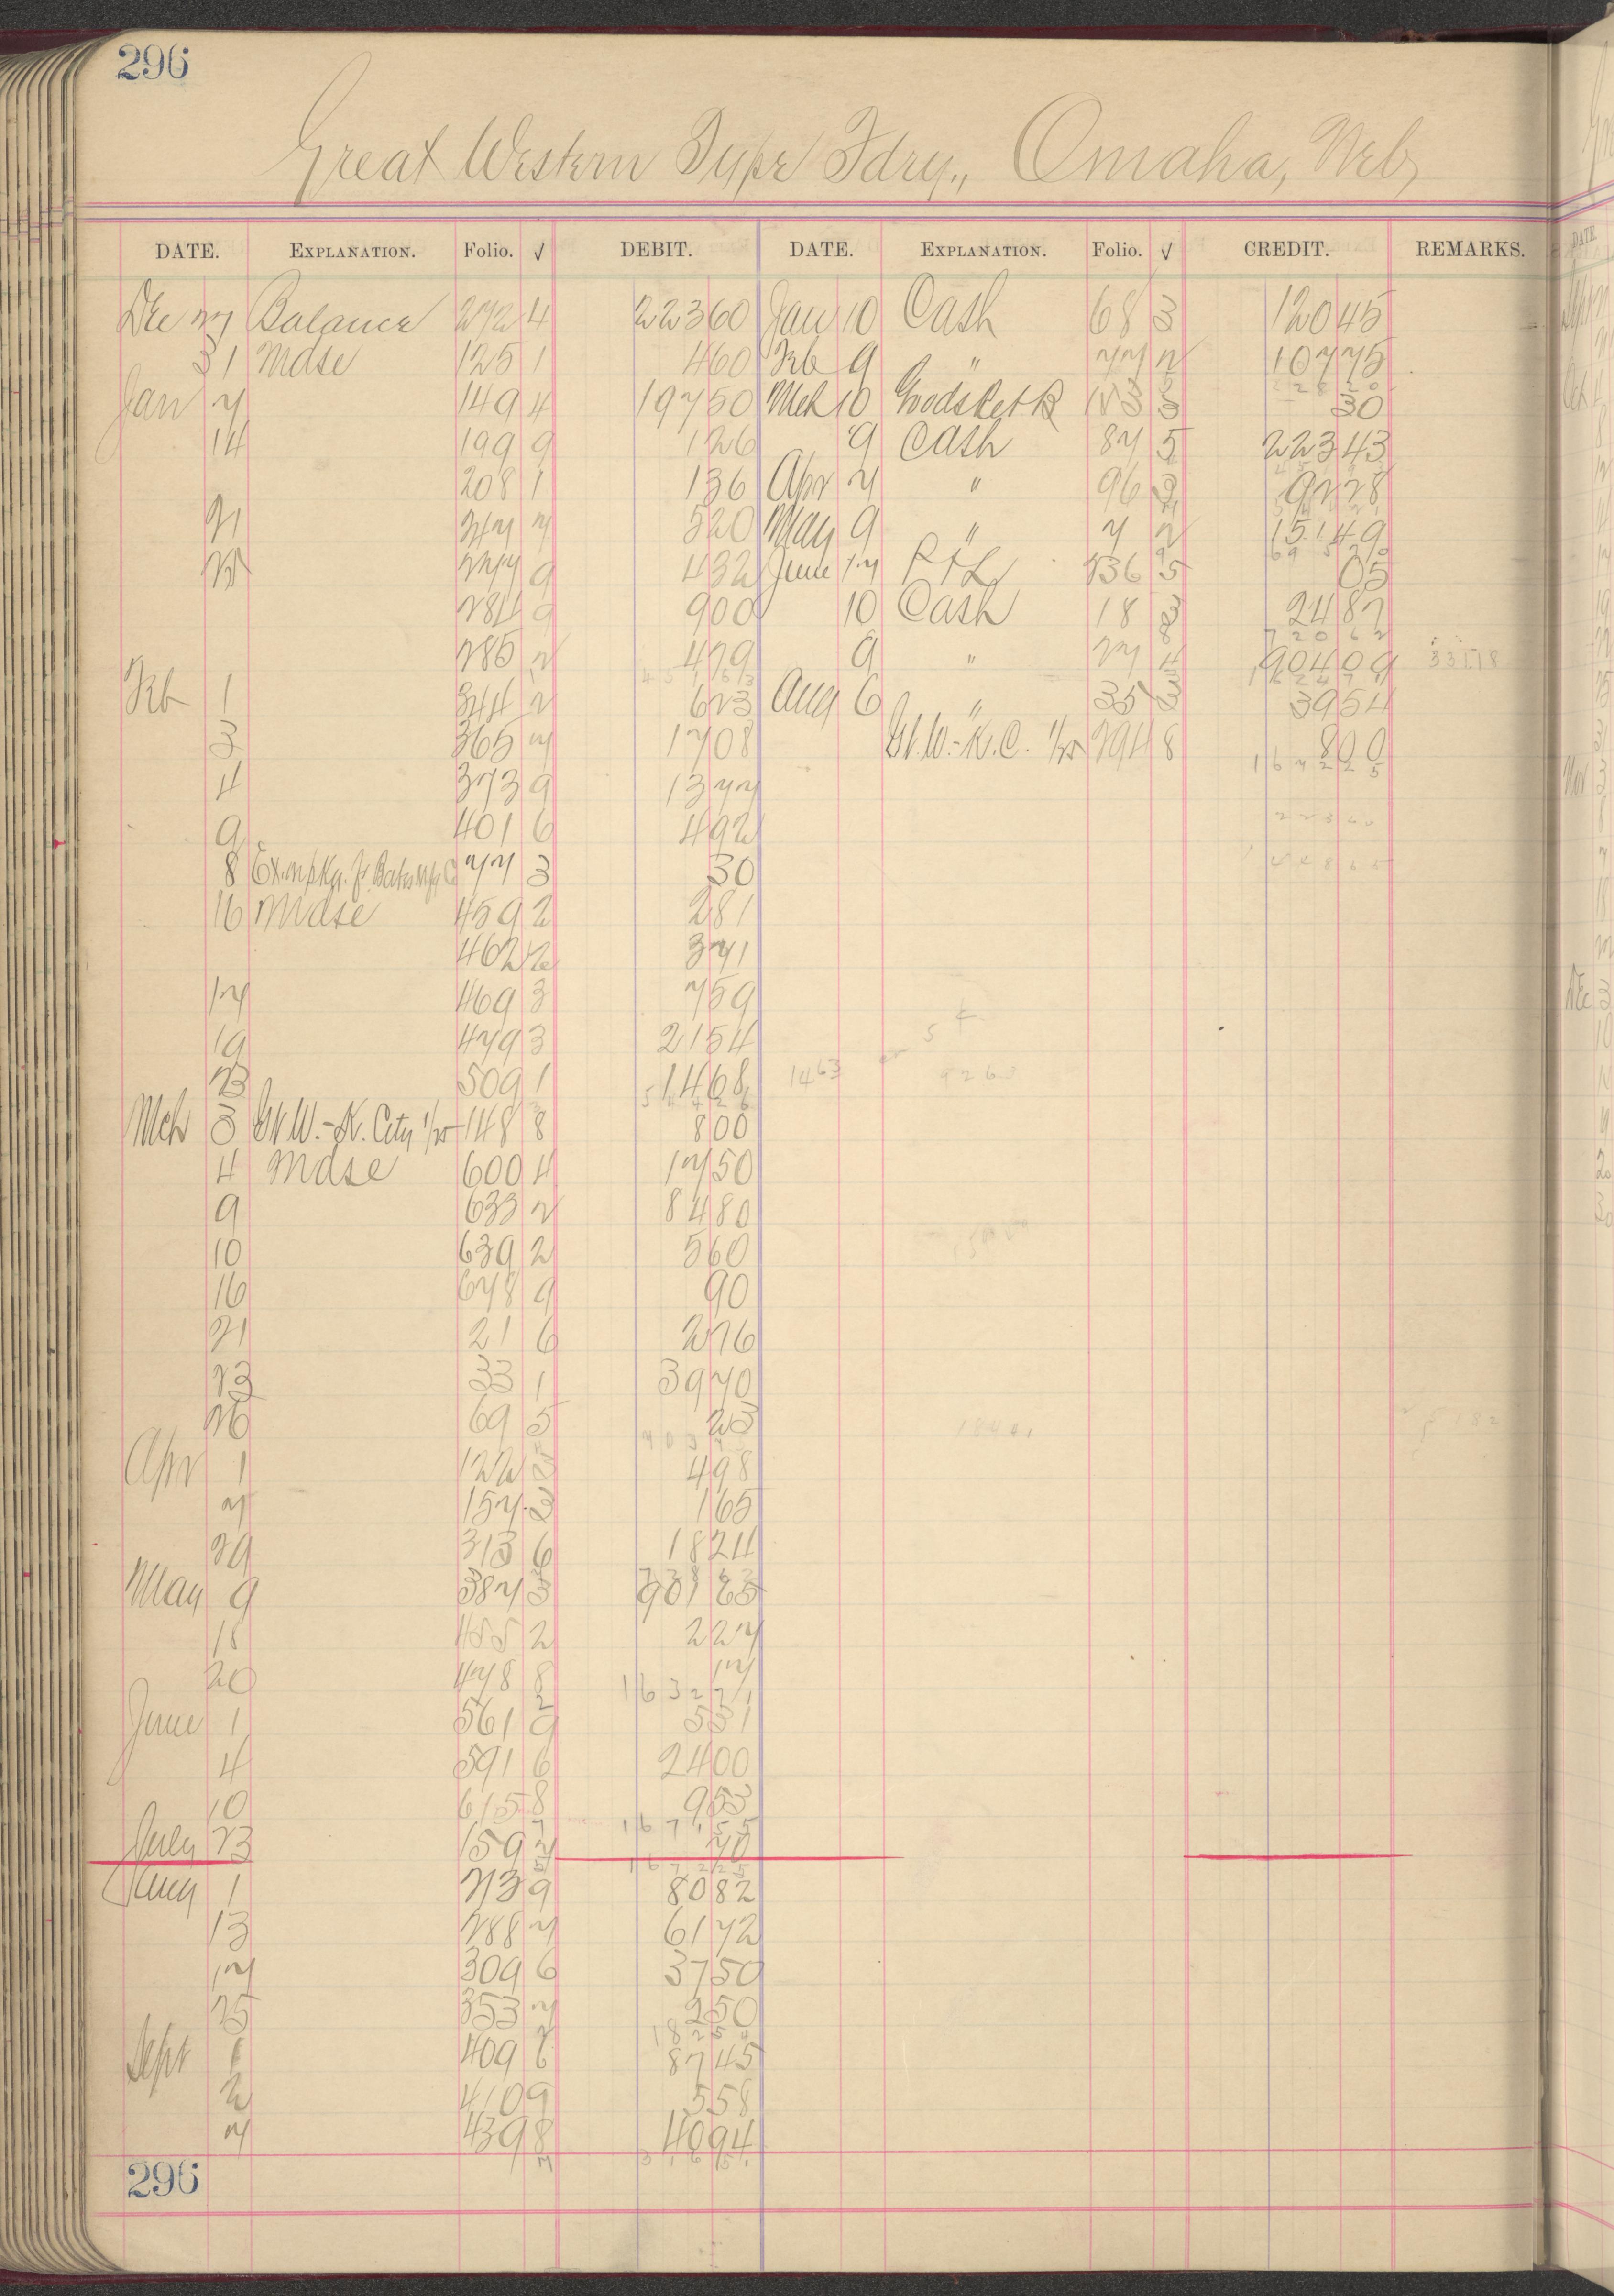 296
Great Western Type Fdry., Omaha, Neb,
DATE. EXPLANATION. Folio. √ DEBIT. DATE. EXPLANATION. Folio. √ CREDIT. REMARKS.
Dec 27 Balance 272 4 223 60 Jan 10 Cash 68 3 120 45
31 Mdse 125 1 4 60 Feb 9 " 77 2 107 75
Jan 7 149 4 197 50 Mch 10 153 3 30
14 199 9 1 26 9 Cash 87 5 223 43
208 1 1 36 Apr 7 " 96 3 92 28
21 247 7 5 20 May 9 " 7 2 151 49
277 9 4 32 June 17 P&L 536 5 05
284 9 9 00 10 Cash 18 3 24 87
285 2 4 79 9 " 27 4 904 09 331.18
Feb 1 344 2 6 23 Aug 6 " 35 3 39 54
3 365 7 17 08 Gt. W.-K.C. 1/25 294 8 8 00
4 373 9 13 77 1672 25
9 401 6 4 92 223 60
8 77 3 30
16 Mdse 459 2 2 81
462 2 3 71
17 469 3 7 59
19 479 3 21 54
23 509 1 14 68 1463 9263
Mch 3 Gt W.-K. City 1/25 148 8 8 00
4 Mdse 600 4 17 50
9 633 2 84 80
10 639 2 5 60
16 678 9 90
21 21 6 2 76
23 33 1 39 70
26 69 5 23
Apr 1 122 5 4 98
7 157 3 1 65
29 313 6 18 24
May 9 387 3 901 65
18 455 2 2 27
20 478 8 17
1632 71
June 1 561 9 5 31
4 591 6 24 00
10 615 8 9 53
1671 55
July 23 159 7 70
1672 25
Aug 1 213 9 80 82
13 288 7 61 72
17 309 6 37 50
25 353 7 2 50
182 54
Sept 1 409 6 87 45
2 410 9 5 58
7 439 8 40 94
296